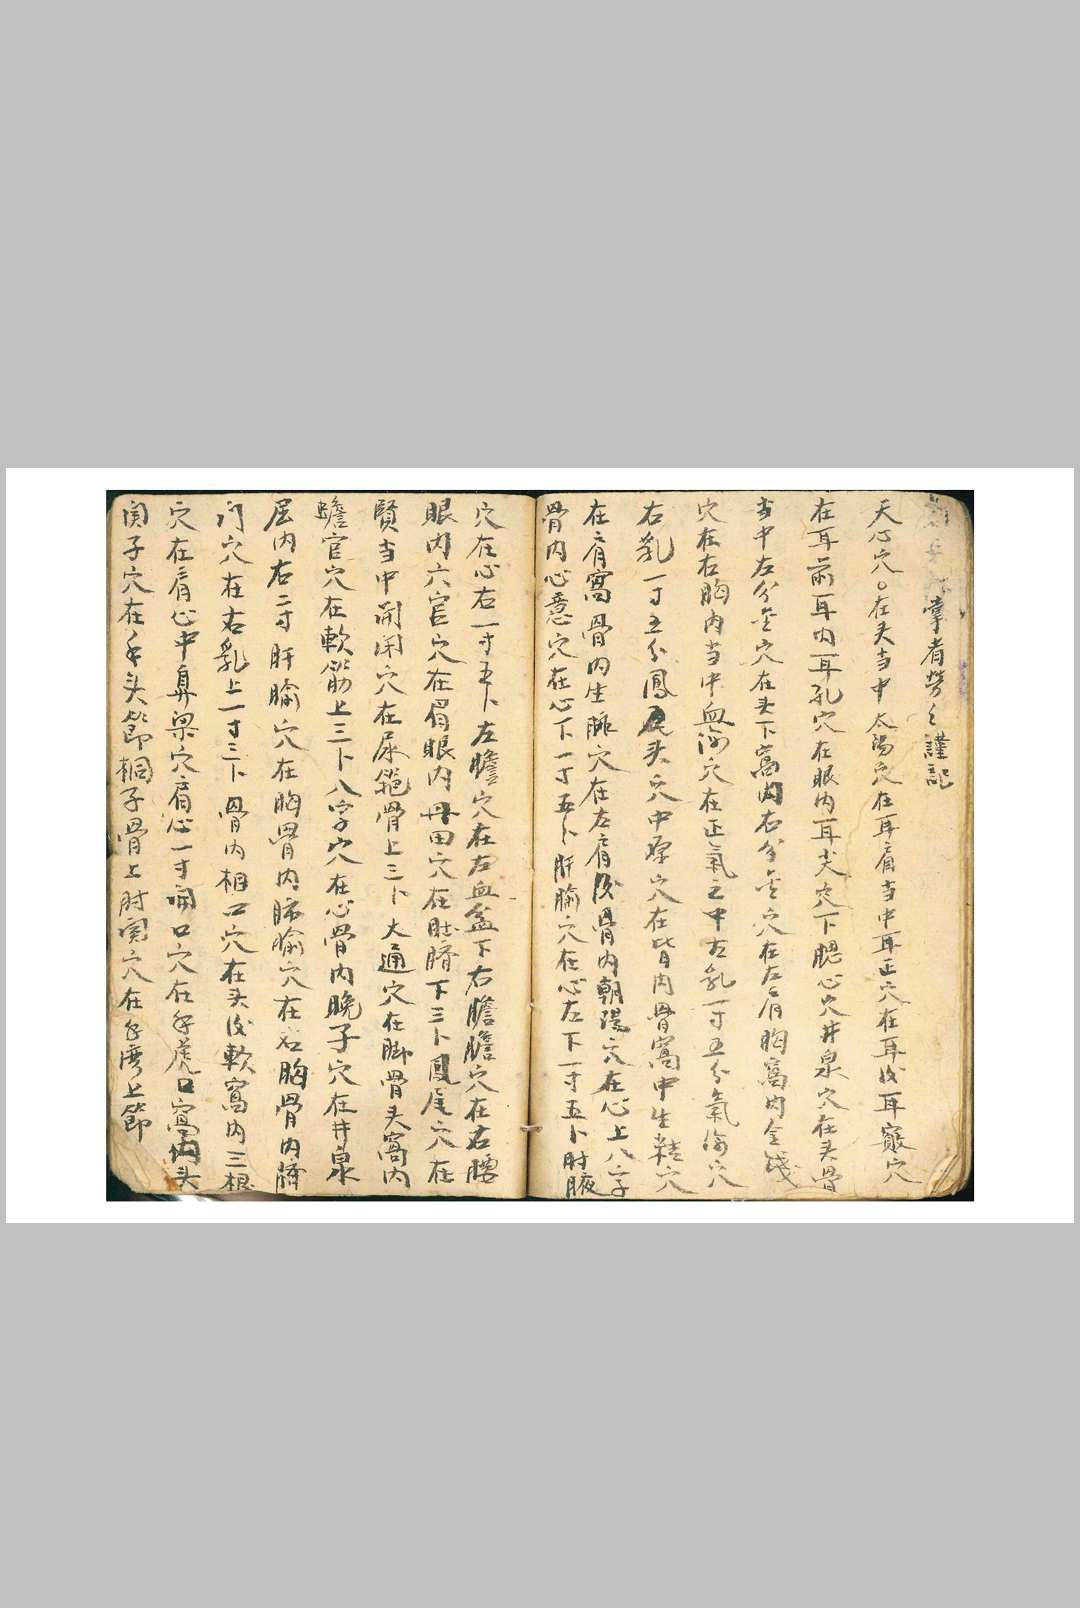 掌者勞之謹記
天心穴。在头当中太陽穴在耳肩当中耳正穴在耳後耳竅穴
在耳前耳内耳孔穴在眼内耳尖穴下腮心穴井泉穴在头骨
当中左分金穴在头下窩内右分金穴在左肩胸窩内金
穴在右胸内当中血俞穴在正氣之中左乳一寸五分氣俞穴
右乳一寸五分鳳尾头穴中原穴在背内骨窩中生精穴
在肩窩骨内生脈穴在左肩後骨内朝陽穴在心上八字
骨内心意穴在心下一寸五卜肝腧穴在心左下一寸五卜肘腋
穴在心右一寸五卜左膽穴在左血盆下右膽膽穴在右腰
眼内六官穴在眉眼内丹田穴在肚臍下三卜鳳尾穴在
賢当中開関穴在尿骨上三卜大通穴在脚骨头窩内
蟾官穴在軟筋上三卜八字穴在心骨内晚子穴在井泉
居内右二寸肝腧穴在胸骨内肺腧穴在右胸骨内
门穴在右乳上一寸三卜骨内相口穴在头後軟窩内三根
穴在肩心中鼻梁穴肩心一寸関口穴在手虎口窩内头
関子穴在手头節桐子骨上肘関穴在手灣上節